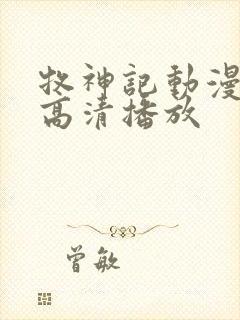 牧神記動漫
高清播放
曾敏